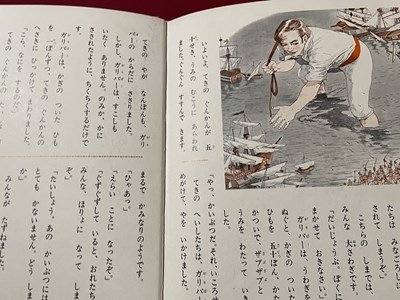 いよいよ、てきの ぐんかんが 五
十せき、うみの むこうに あらわれ
ました。ぐんぐん すすんで きます。
たちは みなごろしに
されて しまうぞ。」
こちらの しまでは、
みんな 大さわぎです。
「だいじょうぶ。ぼくに
まかせて おきなさい。」
ガリバーは、うわぎを
ぬぐと、かぎの ついた
ひもを 五十ぽん、か
かついで、ザブザブ
うみを わたって いき
した。
「あっ、かいぶつだぞ。れい、ころせ
てきの へいしたちは、ガリバー
めがけて、やを いかけました。
てきの やが なんぼんも、ガリ
バーの からだに ささりました。
しかし、ガリバーは、すこしも
いたく ありません。のみか、かに
さされたように、ちくちくするだけで
ガリバーは、かぎの ついた ひも
を 一ぽんずつ、てきの ぐんかんの
へさきに ひっかけて まわりました。
「こら、なにを するのだ。」
まるで、かみなりのようです。
「ひゃあっ。」
「えらい ことに なったぞ。」
「ぐずぐずして いると、おれたち
みんな、ほりょに なって しま
ぞ。」
「たいしょう。あの かいぶつは
とても かないません。どう しま
みんなが たずねました。